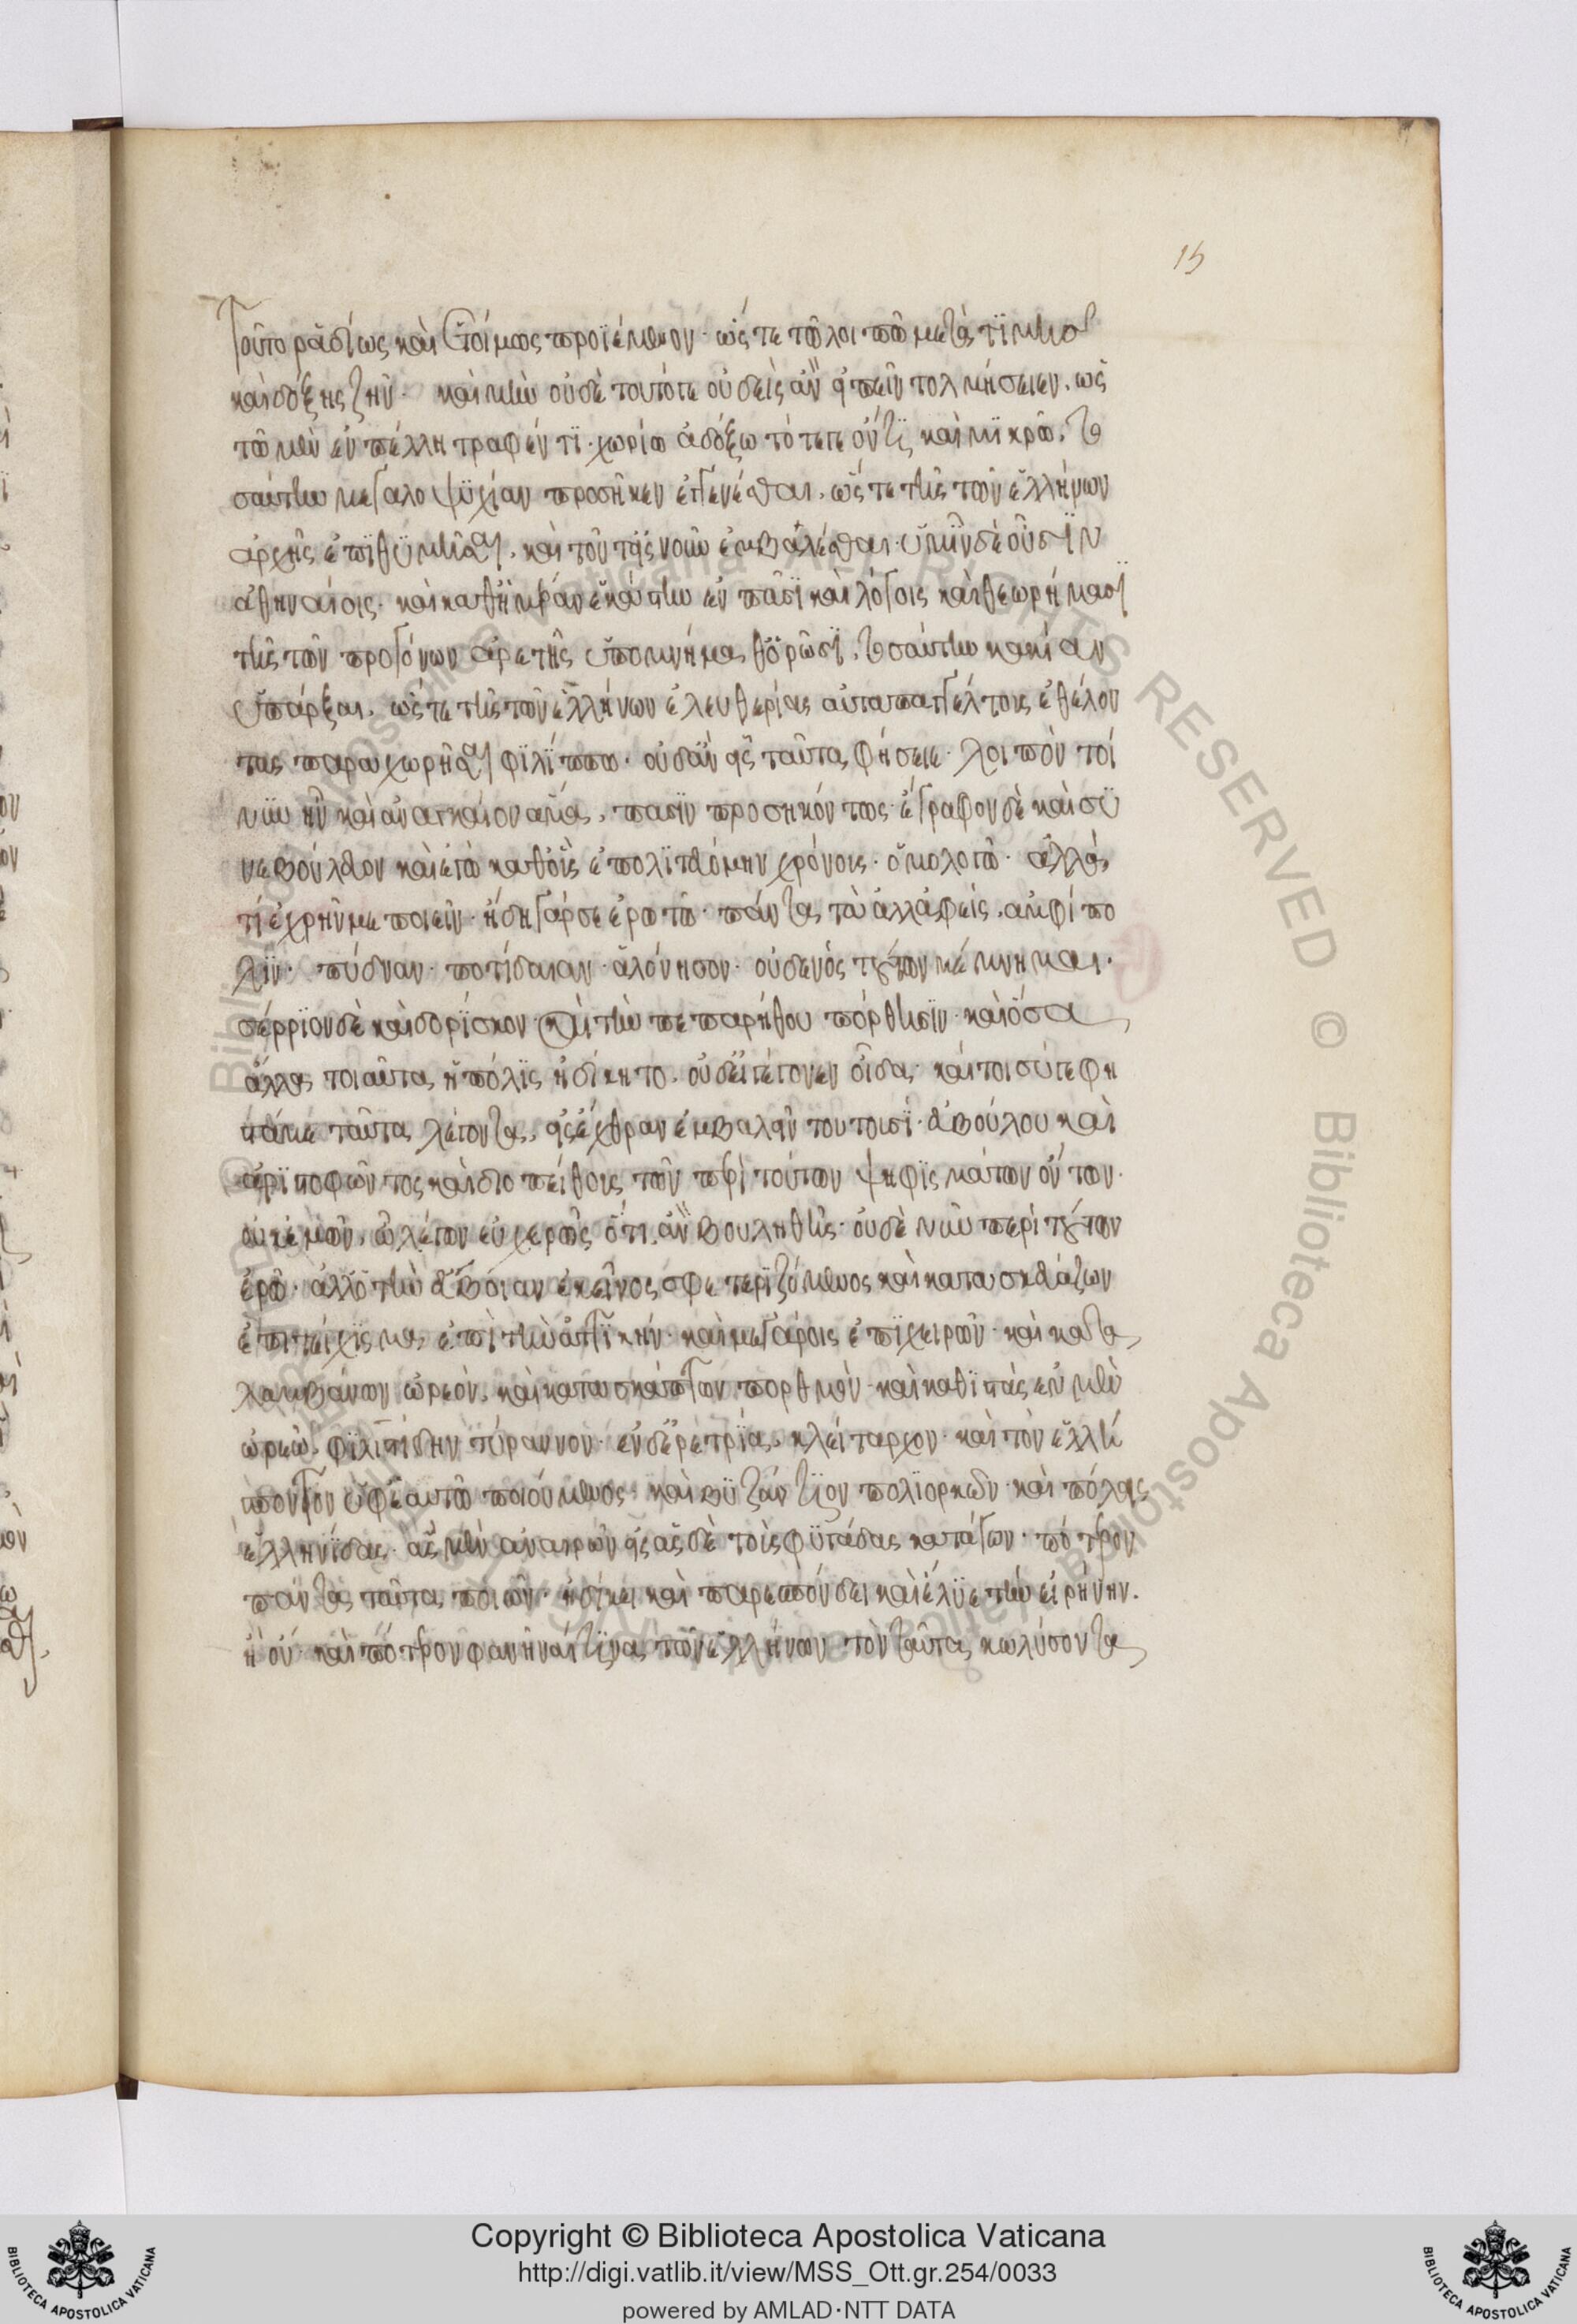 15
τοῦτο ῥᾳδίως καὶ ἑτοίμως προϊέμενον· ὥστε τῷ λοιπῷ μετὰ τιμῆς
καὶ δόξης ζῆν· καὶ μὴν οὐδὲ τοῦτό γε οὐδεὶς ἂν εἰπεῖν τολμήσειεν, ὡς
τῷ μὲν ἐν πέλλῃ τραφέντι· χωρίῳ ἀδόξῳ τότε γε ὄντι καὶ μικρῷ, το
σαύτην μεγαλοψυχίαν προσῆκεν ἐγγενέσθαι, ὥστε τῆς τῶν ἑλλήνων
ἀρχῆς ἐπιθυμῆσαι, καὶ τοῦτ' εἰς νοῦν ἐμβαλέσθαι· ὑμῖν δὲ οὖσιν
ἀθηναίοις· καὶ καθ' ἡμέραν ἑκάστην ἐν πᾶσι καὶ λόγοις καὶ θεωρήμασι
τῆς τῶν προγόνων ἀρετῆς ὑπομνήμαθ' ὁρῶσι, τοσαύτην κακίαν
ὑπάρξαι, ὥστε τῆς τῶν ἑλλήνων ἐλευθερίας αὐταπαγγέλτους ἐθέλον
τας παραχωρῆσαι φιλίππῳ· οὐδ' ἂν εἷς ταῦτα φήσειε· λοιπὸν τοί
νυν ἦν καὶ ἀναγκαῖον ἅμα, πᾶσιν προσηκόντως· ἔγραφον δὲ καὶ συ
νεβούλευον καὶ ἐγὼ καθ' οὓς ἐπολιτευόμην χρόνους· ὁμολογῶ· ἀλλὰ
τί ἐχρῆν με ποιεῖν· ἤδη γάρ σε ἐρωτῶ· πάντα τὰ ἄλλα ἀφείς, ἀμφίπο
λιν· πύδναν· ποτίδαιαν· ἁλόνησον· οὐδενὸς τούτων μέμνημαι·
σέρριον δὲ καὶ δορίσκον καὶ τὴν πεπαρήθου πόρθησιν· καὶ ὅσα
ἄλλα τοιαῦτα ἡ πόλις ἠδίκητο, οὐδ' εἰ γέγονεν οἶδα· καίτοι σύ γ' ἔφη
στά με ταῦτα λέγοντα, εἰς ἔχθραν ἐμβαλεῖν τουτοισί· εὐβούλου καὶ
ἀριστοφῶντος καὶ διοπείθους τῶν περὶ τούτων ψηφισμάτων ὄντων·
οὐκ ἐμῶν, ὦ λέγων εὐχερῶς ὅτι ἂν βουληθῇς· οὐδὲ νῦν περὶ τούτων
ἐρῶ· ἀλλ' ὁ τὴν εὔβοιαν ἐκεῖνος σφετεριζόμενος καὶ κατασκευάζων
ἐπιτείχισμα ἐπὶ τὴν ἀττικήν· καὶ μεγάροις ἐπιχειρῶν· καὶ κατα
λαμβάνων ὠρεόν, καὶ κατασκάπτων πορθμὸν· καὶ καθιστὰς ἐν μὲν
ὠρεῷ φιλιστίδην τύραννον· ἐν δ' ἐρετρίᾳ, κλείταρχον· καὶ τὸν ἑλλή
σποντον ὑφ' ἑαυτῷ ποιούμενος· καὶ βυζάντιον πολιορκῶν· καὶ πόλεις
ἑλληνίδας· ἃς μὲν ἀναιρῶν εἰς ἃς δὲ τοὺς φυγάδας κατάγων· πότερον
πάντα ταῦτα ποιῶν· ἠδίκει καὶ παρεσπόνδει καὶ ἔλυε τὴν εἰρήνην·
ἢ οὔ· καὶ πότερον φανῆναί τινα τῶν ἑλλήνων τὸν ταῦτα κωλύσοντα
Copyright © Biblioteca Apostolica Vaticana
http://digi.vatlib.it/view/MSS_Ott.gr.254/0033
powered by AMLAD·NTT DATA